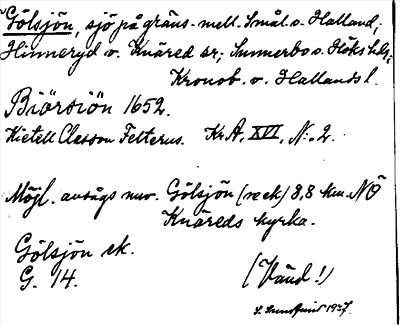 Gölsjön, sjö på gräns. mell. Smål. o. Halland;
Hinneryd o. Knäred sr; Sunnerbo o. Höks hdr;
Kronob. o. Hallands l.
Biörsiön 1652.
Kietell Classon Felterus. Kr.A. XVI, N:o 2.
Möjl. avsågs nuv. Gölsjön (rec k) 8,8 km. NÖ
Knäreds kyrka.
Gölsjön ek.
G. 14.
(Vänd!)
S. Lundquist 1937.